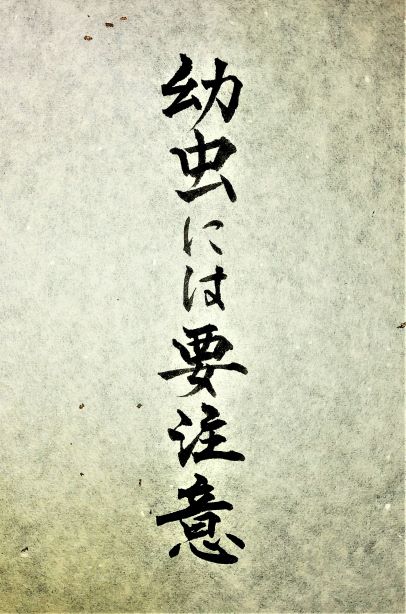 幼虫には要注意